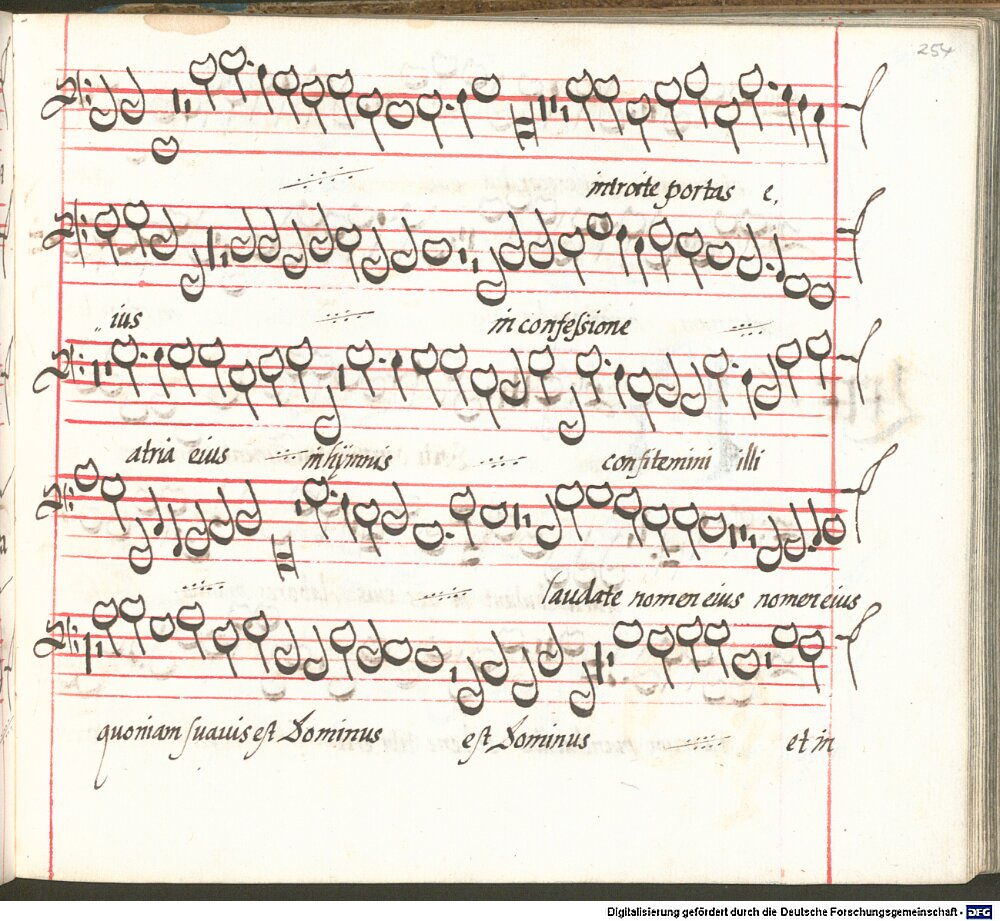 254
introite portas e,
ius in confeſsione
atria eius in hijmnis confitemini illi
laudate nomen eius nomen eius
quoniam ſuauis eſt Dominus eſt Dominus et in
Digitalisierung gefördert durch die Deutsche Forschungsgemeinschaft - DFG